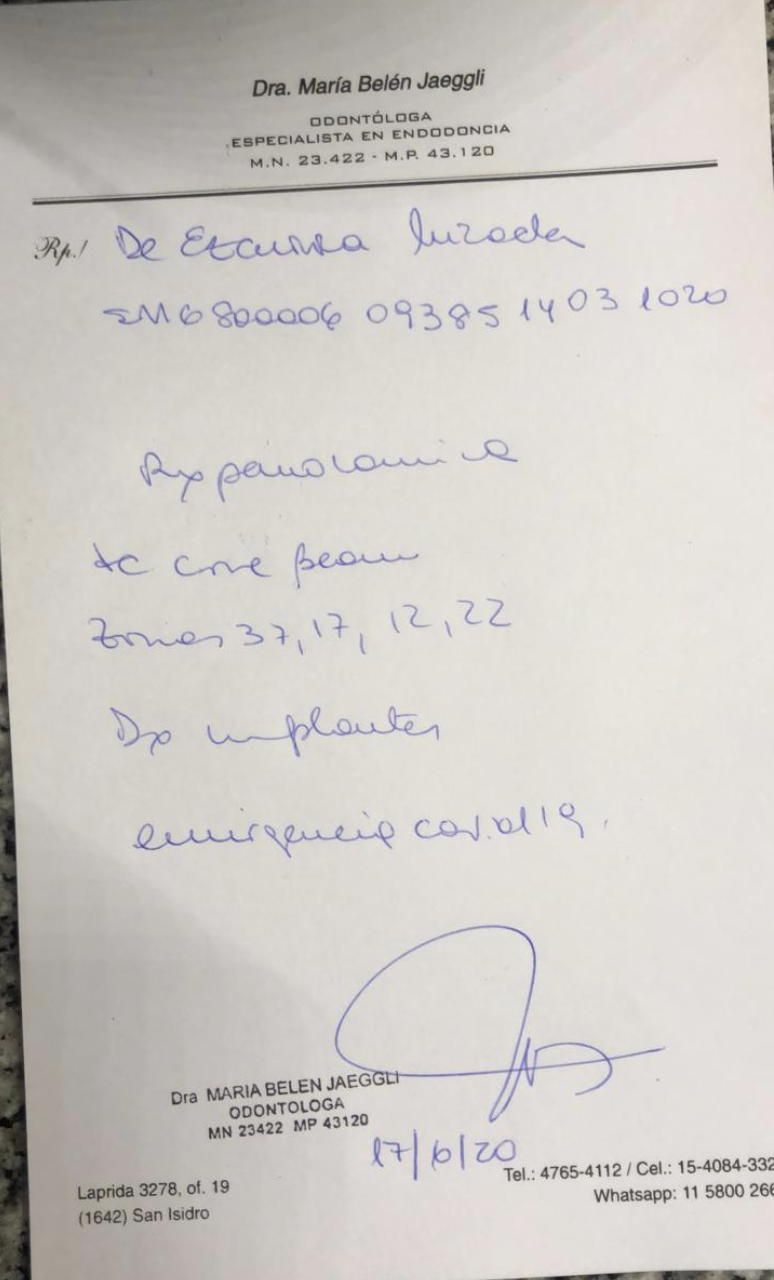 Dra. María Belén Jaeggli
ODONTÓLOGA
ESPECIALISTA EN ENDODONCIA
M.N. 23.422 - M.P. 43.120
Rp./ De Ezcurra
6800006 093851403 1020
Rx panoramica
tc cone beam
Zonas 37, 17, 12, 22
Dx implantes
emergencia covid 19.
Dra MARIA BELEN JAEGGLI
ODONTOLOGA
MN 23422 MP 43120
17/6/20
Laprida 3278, of. 19
(1642) San Isidro
Tel.: 4765-4112 / Cel.: 15-4084-332
Whatsapp: 11 5800 266